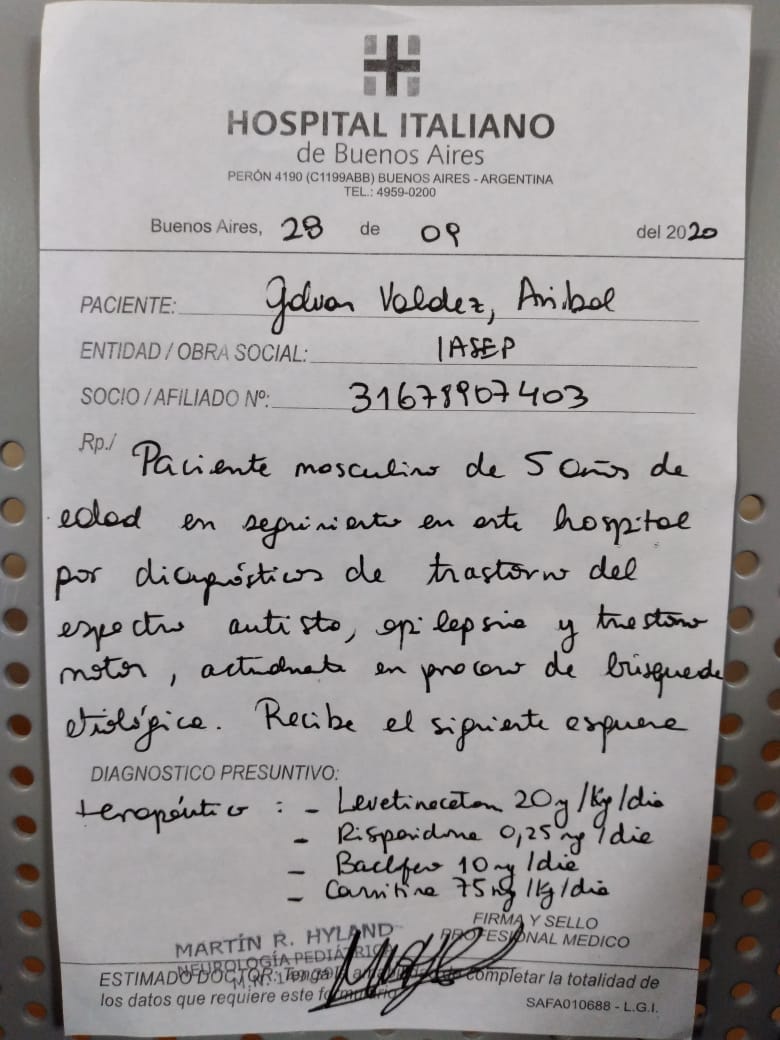 HOSPITAL ITALIANO
de Buenos Aires
PERÓN 4190 (C1199ABB) BUENOS AIRES - ARGENTINA
TEL.: 4959-0200
Buenos Aires, 28 de 09 del 2020
PACIENTE: Galvan Valdez, Anibal
ENTIDAD / OBRA SOCIAL: IASEP
SOCIO / AFILIADO Nº: 31678907403
Rp./ Paciente masculino de 5 años de
edad en seguimiento en este hospital
por diagnósticos de trastorno del
espectro autista, epilepsia y trastorno
motor, actualmente en proceso de búsqueda
etiológica. Recibe el siguiente esquema
DIAGNOSTICO PRESUNTIVO:
terapéutico : - Levetiracetam 20 mg/kg/dia
- Risperidona 0,25 mg/dia
- Baclofeno 10 mg/dia
- Carnitina 75 mg/kg/dia
FIRMA Y SELLO
PROFESIONAL MEDICO
MARTÍN R. HYLAND
NEUROLOGÍA PEDIÁTRICA
M.N.
ESTIMADO DOCTOR: Tenga la de completar la totalidad de
los datos que requiere este formulario
SAFA010688 - L.G.I.